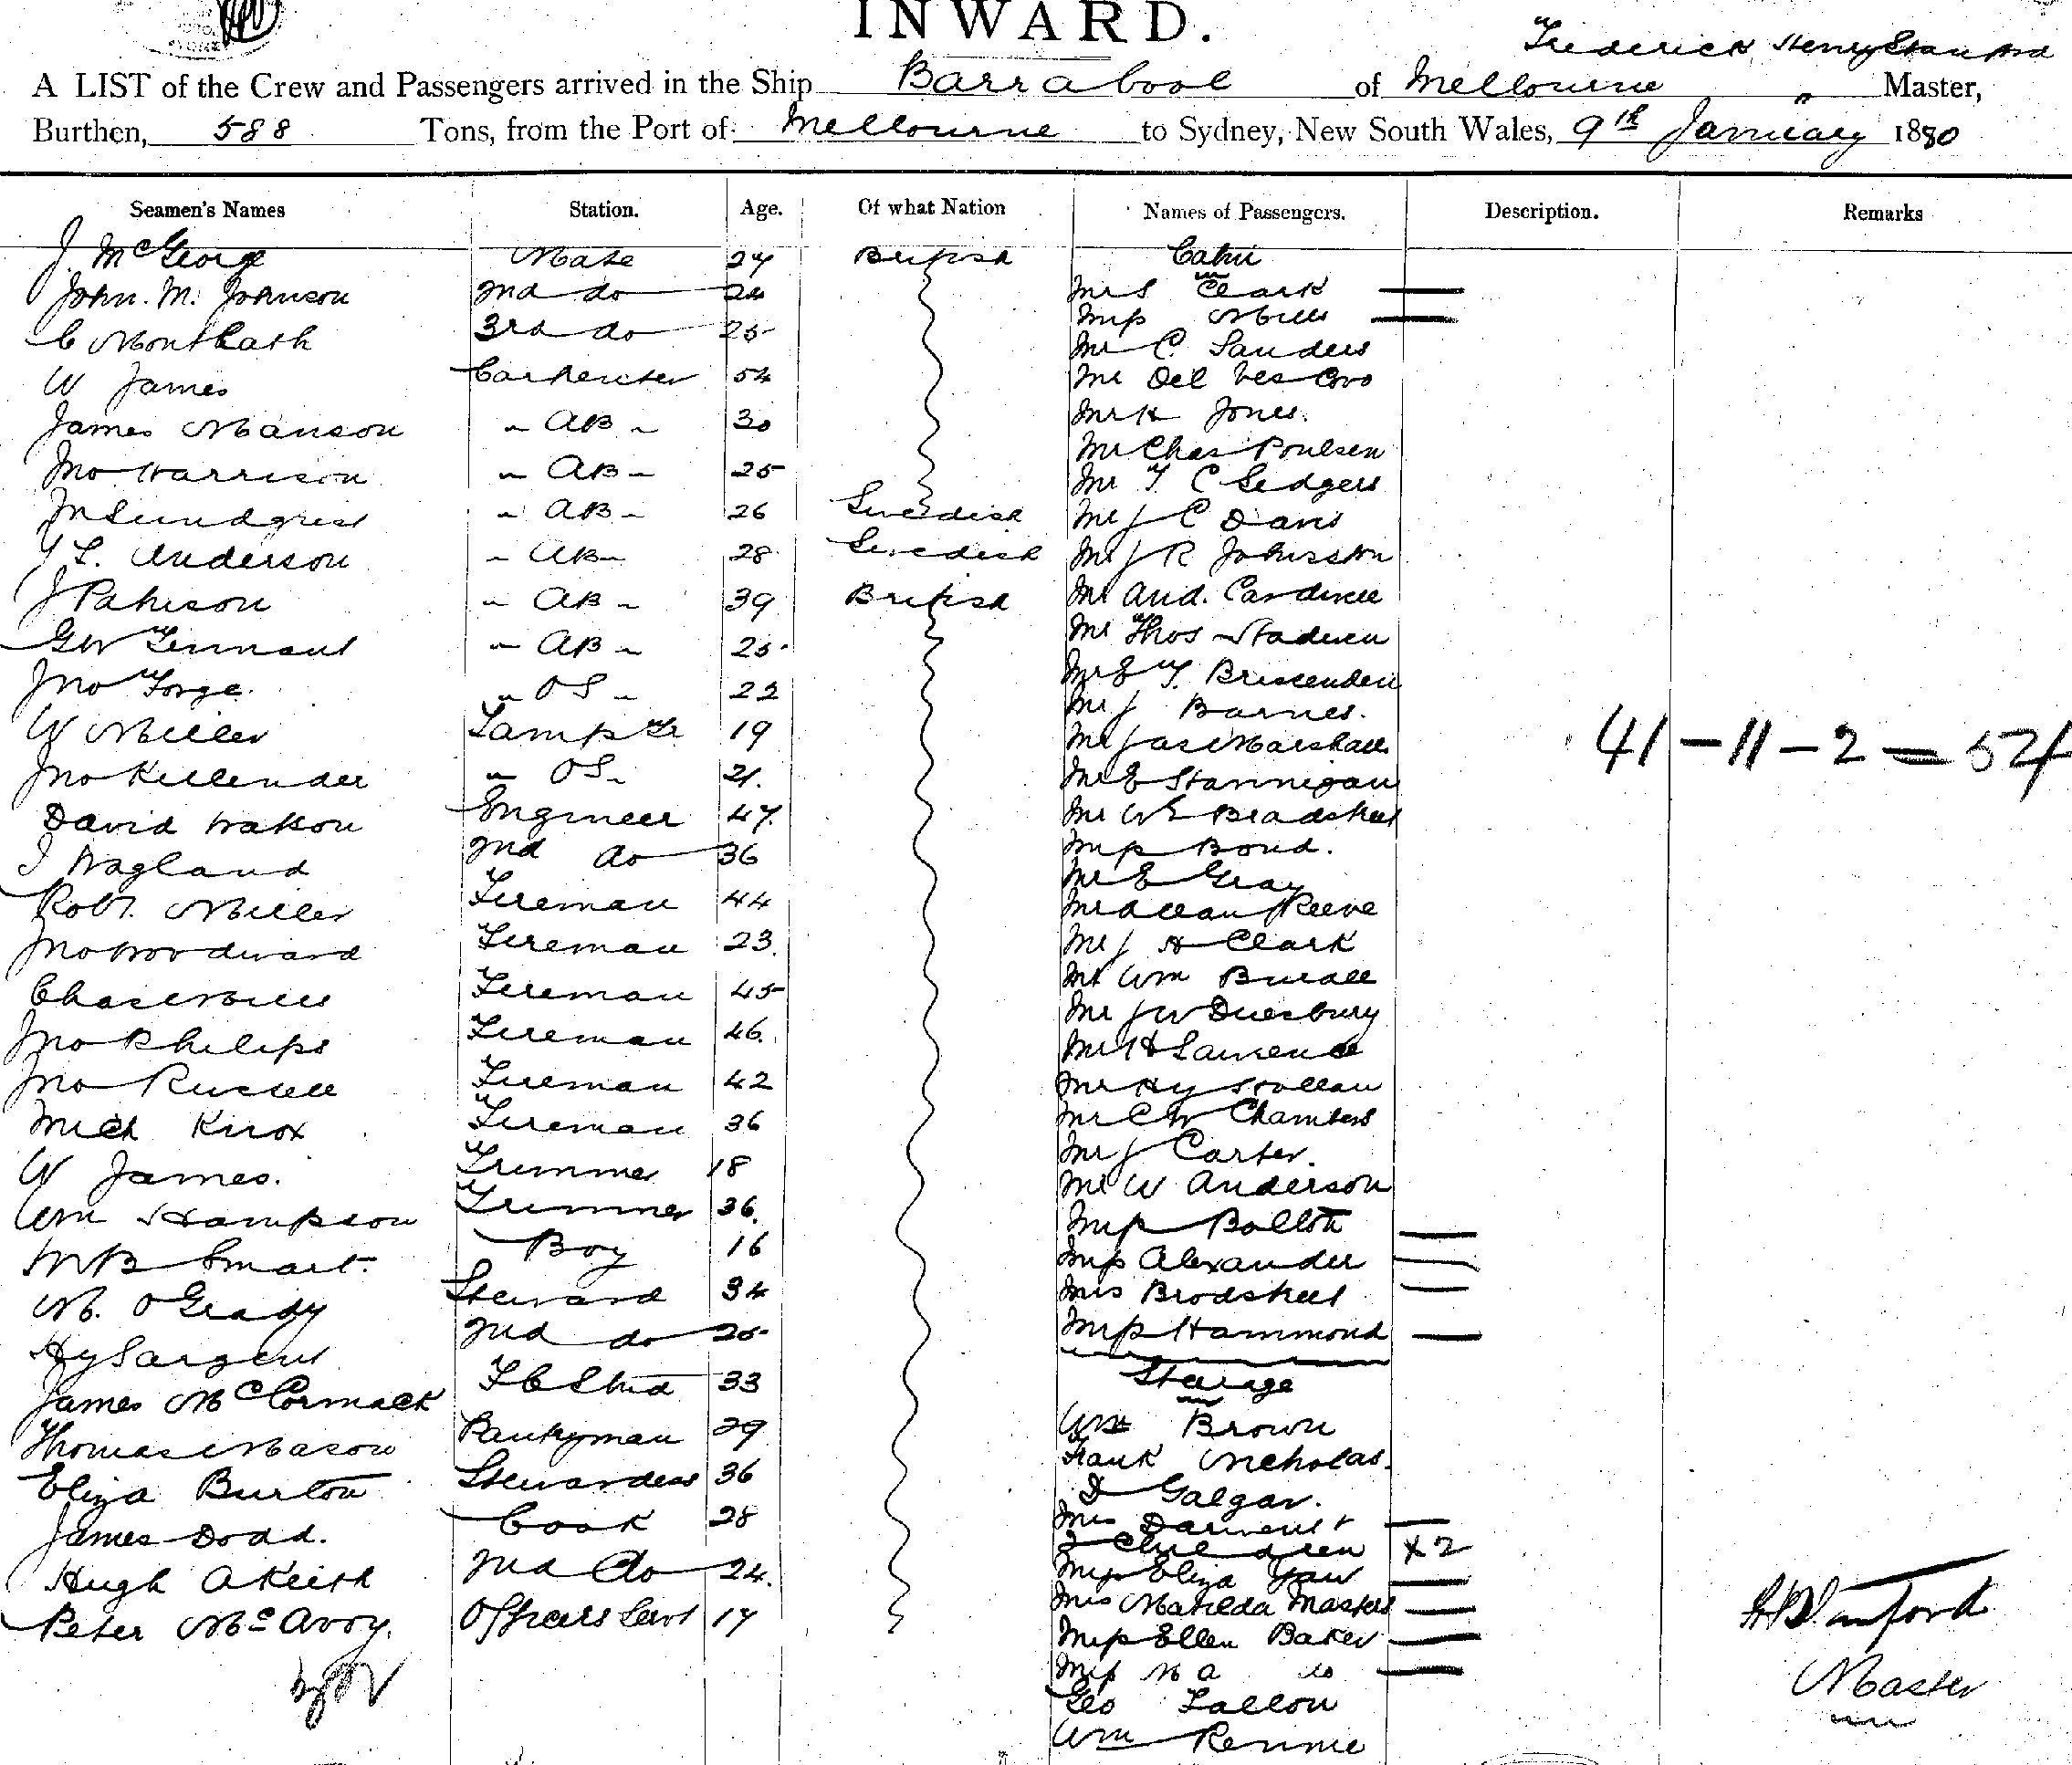 INWARD.
Frederick Henry Stanford
A LIST of the Crew and Passengers arrived in the Ship Barrabool of Melbourne " Master,
Burthen, 588 Tons, from the Port of Melbourne to Sydney, New South Wales, 9th January 1880
Seamen's Names Station. Age. Of what Nation Names of Passengers. Description. Remarks
J. McGeorge Mate 24 British Cabin
John. M. Johnson 2nd do 24 Mrs Clark
C Monteath 3rd do 25 Miss Mills
Mr C. Sanders
W James Carpenter 54 Mr Del Vescovo
James Manson " AB " 30 Mr H Jones.
Jno Harrison " AB " 25 Mr Chas Poulsen
Mr T C Sedgers
J Lundquist " AB " 26 Swedish Mr J C Davis
L. Anderson " AB " 28 Swedish Mr J R Johnston
J Patison " AB " 39 British Mr And. Cardinell
G W Tennant " AB " 25 Mr Thos
Jno Forge. " OS " 22 Mr E T. Briscenden
Mr J Barnes.
W Miller Lamp Tr 19 Mr Jas Marshall
41 - 11 - 2 = 54
Jno Killender " OS " 21. Mr E Hannigan
David Watson Engineer 47. Mr W E Bradstreet
J Wagland 2nd do 36 Miss Bond.
Mr E Gray
Robt. Miller Fireman 44 Mr Allan Reeve
Jno Woodward Fireman 23. Mr J H Clark
Chas Mills Fireman 45 Mr Wm Burall
Mr J W Duesbury
Jno Philips Fireman 46. Mr H Lawrence
Jno Russell Fireman 42 Mr Hy
Mich Knox Fireman 36 Mr C W Chambers
Mr J Carter.
W James. Trimmer 18 Mr W Anderson
Wm Hampson Trimmer 36. Miss Bolton
W B Smart. Boy 16 Miss Alexander
M. O'Grady Steward 34 Mrs Brodstreet
Hy Sargent 2nd do 25 Miss Hammond
James McCormack F C Stwd 33 Steerage
Wm Brown
Thomas Mason Pantryman 29 Frank Nicholas.
Eliza Burton Stewardess 36 D Galgar.
James Dodd. Cook 28 Mrs Darment &
2 Children X 2
Hugh A Keith 2nd do 24. Miss Eliza Yaw
Mrs Matilda Masters
Peter McAvoy. Officers Servt 17 Miss Ellen Baker
Miss M A do
H Stanford
Master
Geo Fallon
Wm Rennie